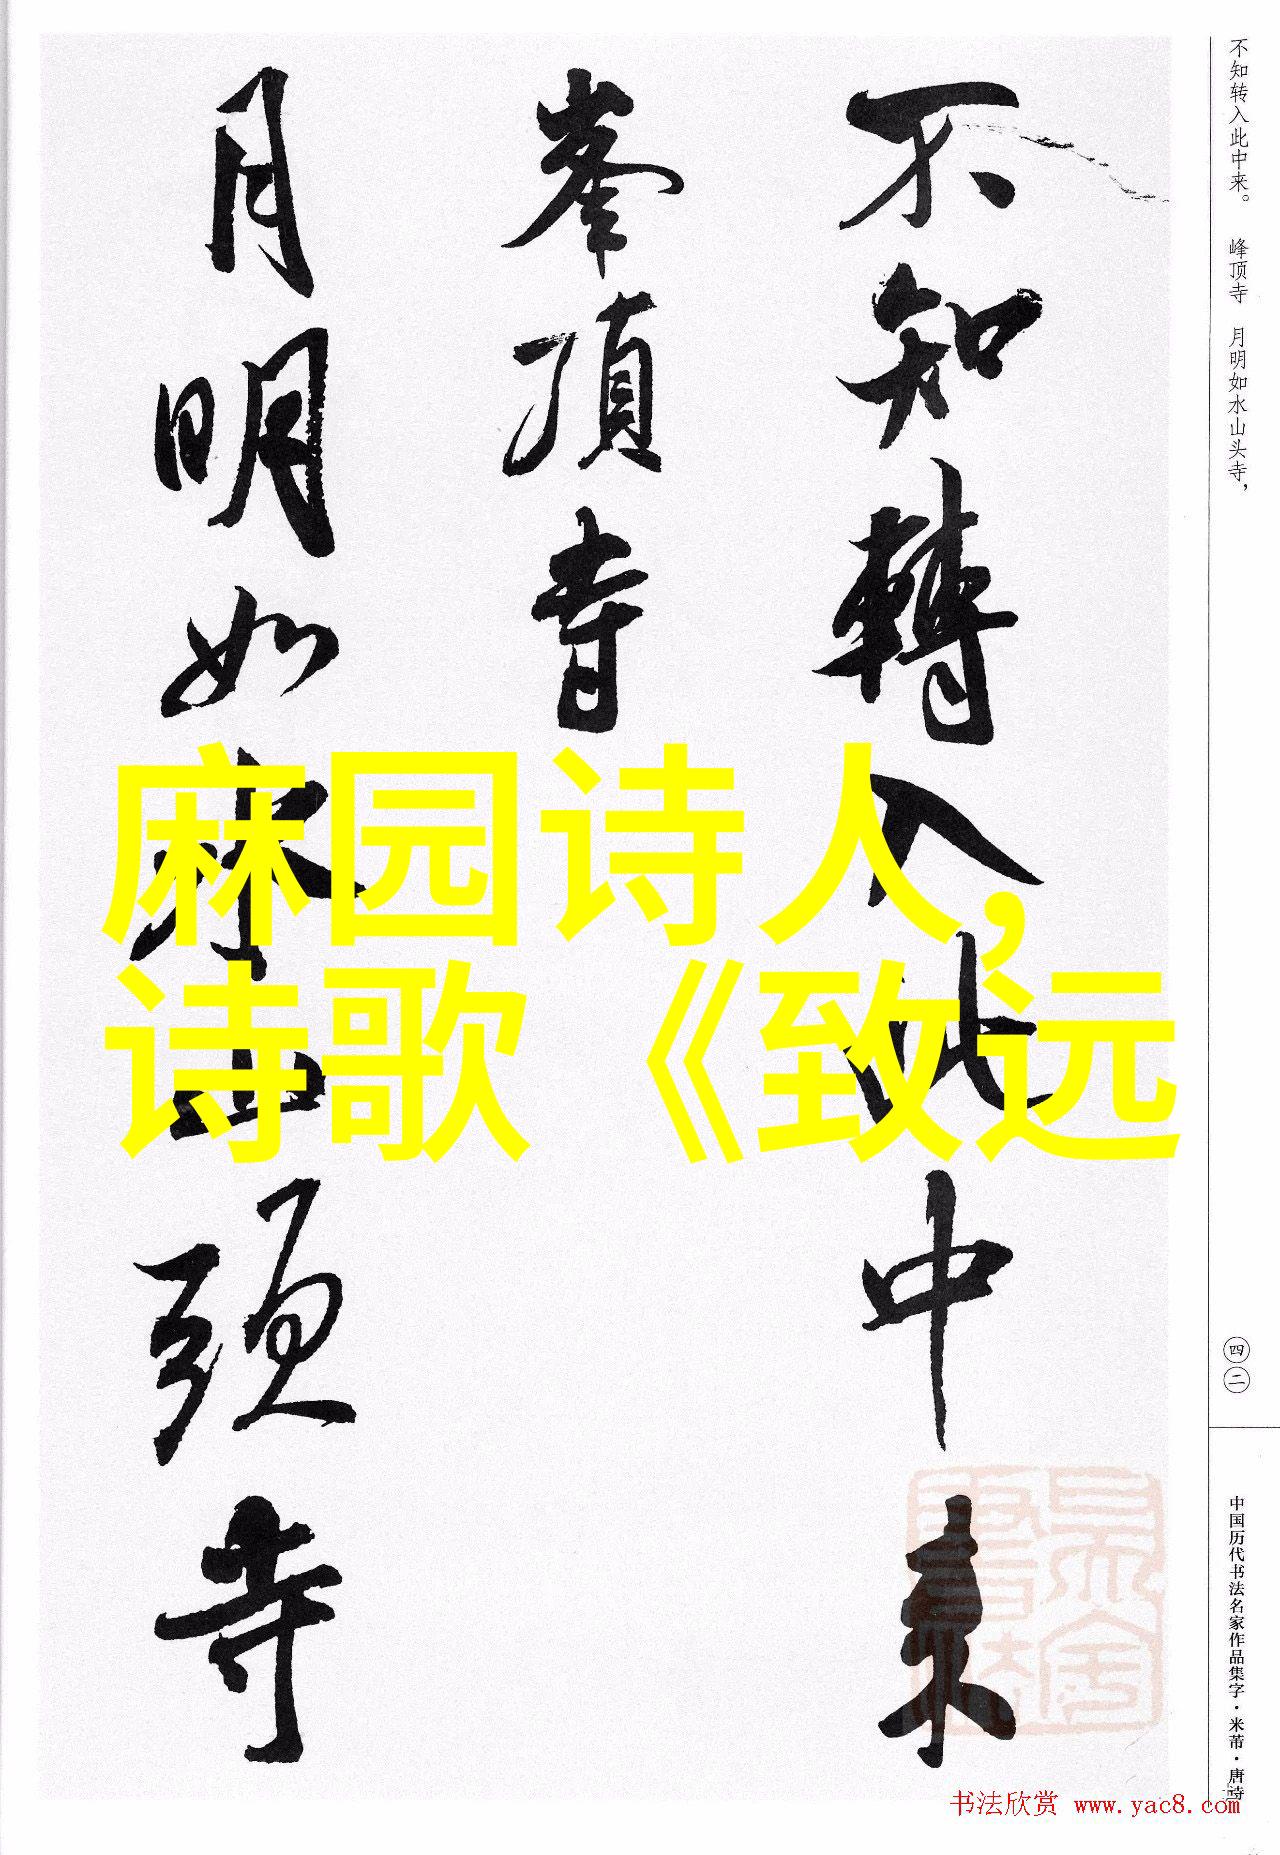 不知转入此中来。 峰顶寺 月明如水山头寺，
不知轉入此中来
峯頂寺
月明如水山頭寺
麻园诗人，
诗歌《致远
四二
中国历代书法名家作品集字·米芾·唐诗
书法欣赏 www.yac8.com